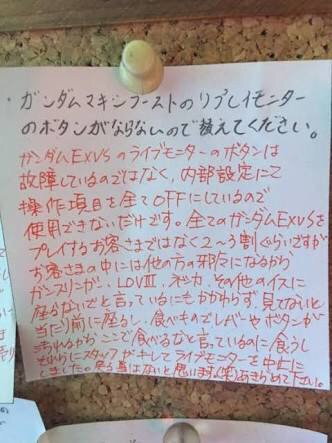 ガンダムマキシブーストのリプレイモニター
のボタンがならないので替えてください。
ガンダムEXVSのライブモニターのボタンは
故障しているのではなく、内部設定にて
操作項目を全てOFFにしているので
使用できないだけです。全てのガンダムEXVSを
プレイするお客さまではなく2〜3割くらいですが
お客さまの中には他の方の邪魔になるから
ガンスリンガー、LOVⅢ、ボーダー、その他のイスに
座るないでと言っているにもかかわらず、見てないと
当たり前に座るし、食べものでレバーやボタンが
汚れるから ここで食べるなと言っているのに食うし
それらにスタッフがキレしてライブモニターを中止に
しました。戻る事はないと思います(笑)あきらめて下さい。